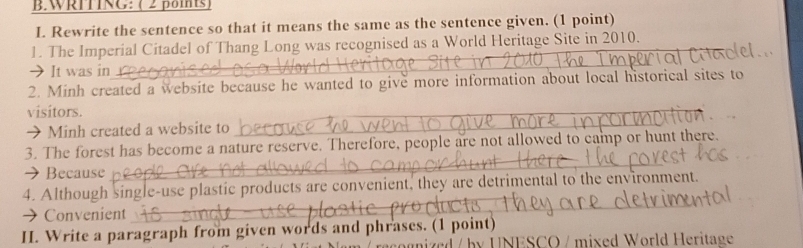 B.WRITING: ( 2 points)
I. Rewrite the sentence so that it means the same as the sentence given. (1 point)
1. The Imperial Citadel of Thang Long was recognised as a World Heritage Site in 2010.
→ It was in reeognised as a World Heritage Site in 2010 the Imperial Citadel...
2. Minh created a website because he wanted to give more information about local historical sites to
visitors.
→ Minh created a website to because he went to give more information...
3. The forest has become a nature reserve. Therefore, people are not allowed to camp or hunt there.
→ Because people are not allowed to camp or hunt there the forest has ...
4. Although single-use plastic products are convenient, they are detrimental to the environment.
→ Convenient is single-use plastic products they are detrimental
II. Write a paragraph from given words and phrases. (1 point)
/ recognized / by UNESCO / mixed World Heritage